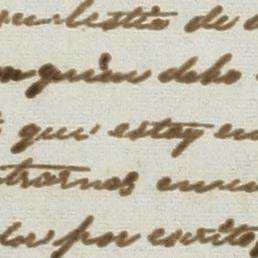 molestia de
a quien debo
que estoy en
trarnos
dor por escrito